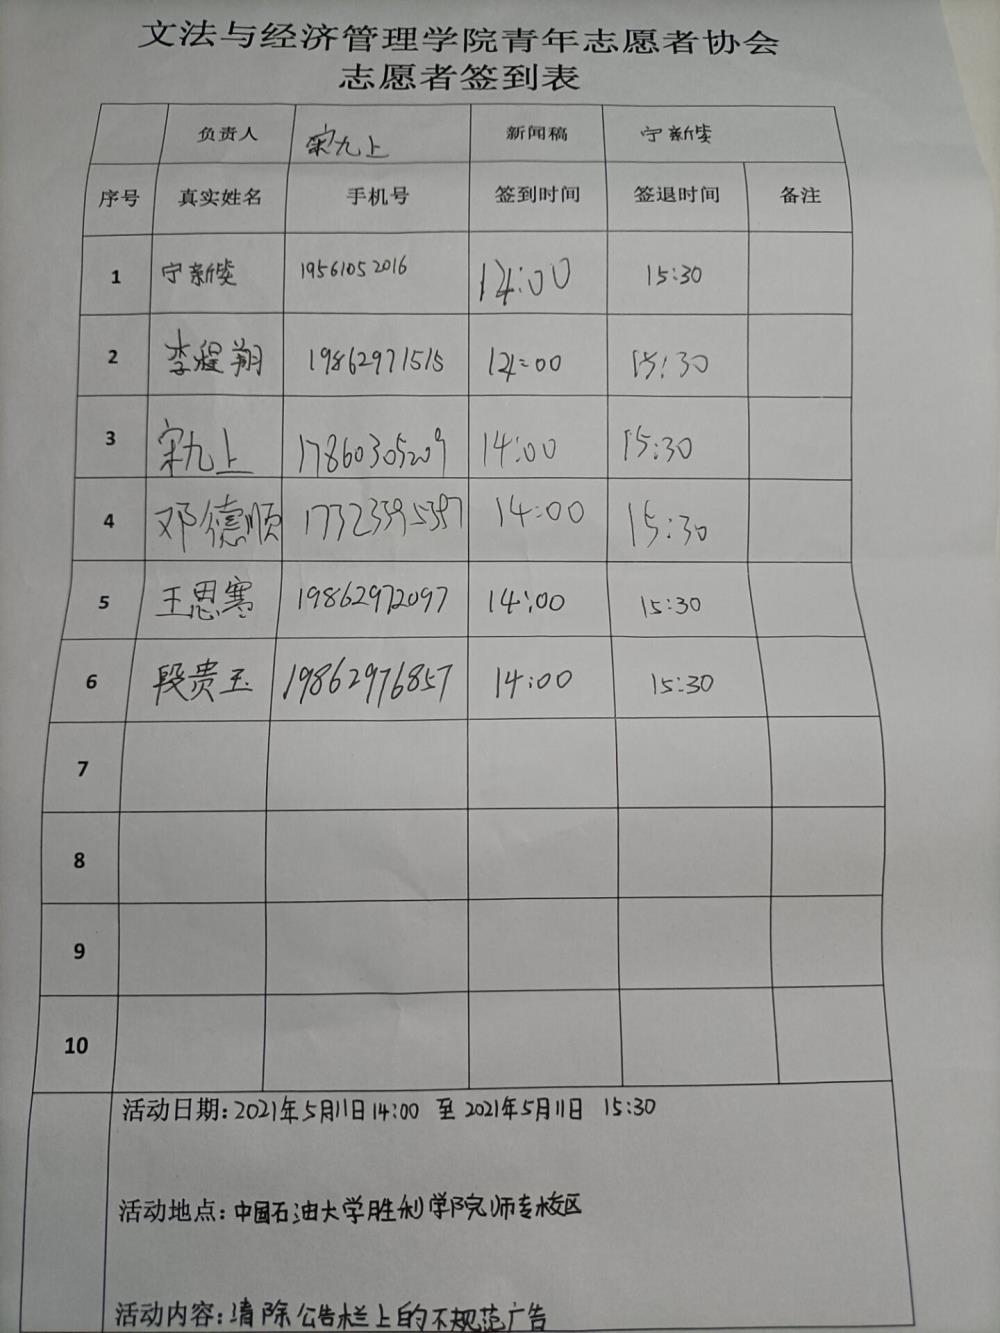 文法与经济管理学院青年志愿者协会
志愿者签到表
负责人 宋九上 新闻稿 宁新
序号 真实姓名 手机号 签到时间 签退时间 备注
1 宁新 19561052016 14:00 15:30
2 李程翔 19862971515 14:00 15:30
3 宋九上 17860305209 14:00 15:30
4 邓德顺 17323395397 14:00 15:30
5 王思寒 19862972097 14:00 15:30
6 段贵玉 19862976857 14:00 15:30
7
8
9
10
活动日期:2021年5月11日14:00 至 2021年5月11日 15:30
活动地点:中国石油大学胜利学院师专校区
活动内容:清除公告栏上的不规范广告